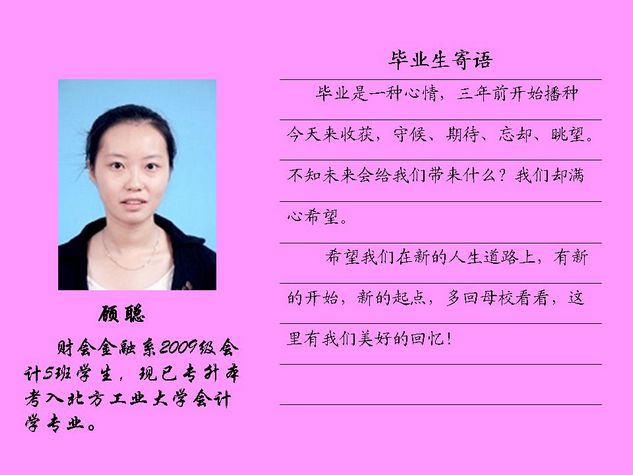 毕业生寄语
毕业是一种心情，三年前开始播种
今天来收获，守候、期待、忘却、眺望。
不知未来会给我们带来什么？我们却满
心希望。
希望我们在新的人生道路上，有新
的开始，新的起点，多回母校看看，这
里有我们美好的回忆！
顾聪
财会金融系2009级会
计5班学生，现已专升本
考入北方工业大学会计
学专业。